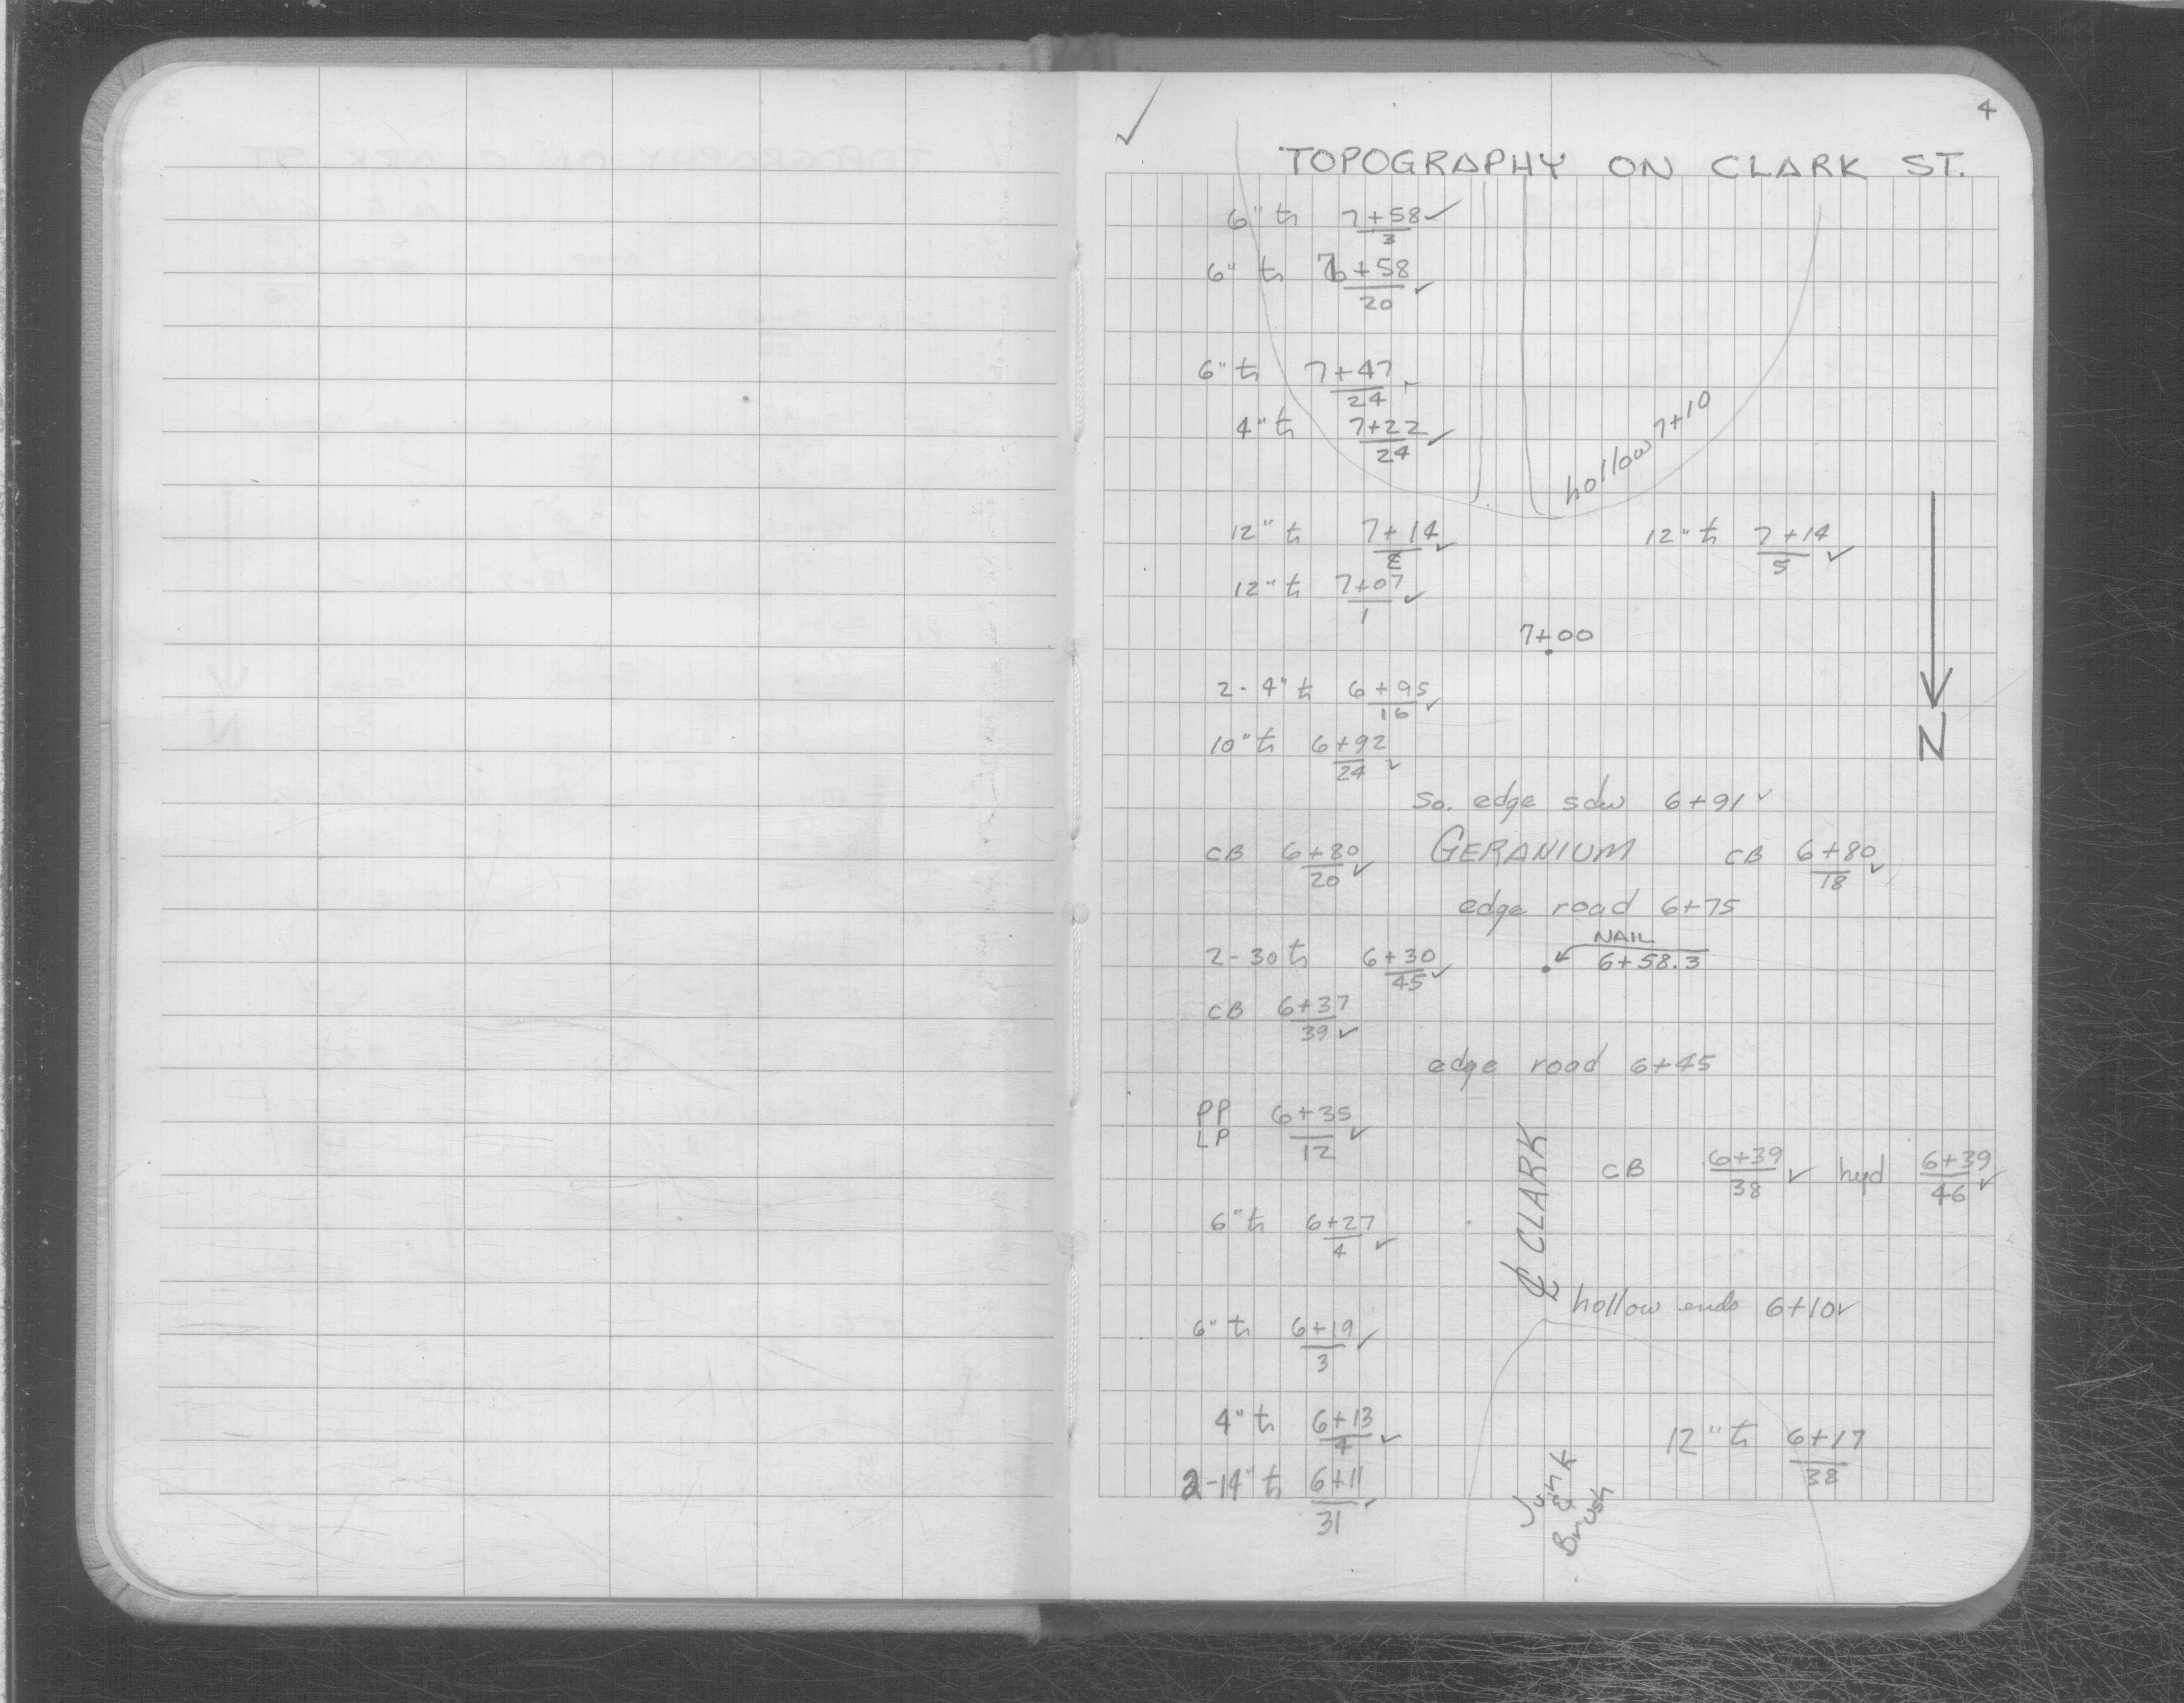 4
TOPOGRAPHY ON CLARK ST.
6" tr 7+58 ✓
3
6" tr 7+58 ✓
20
6" tr 7+47 ✓
24
4" tr 7+22 ✓
24
hollow 7+10
12" tr 7+14 ✓ 12" tr 7+14 ✓
5
12" tr 7+07 ✓
1
7+00
2-4" tr 6+95 ✓
16
10" tr 6+92 ✓
24
N
So. edge sdw 6+91 ✓
CB 6+80 ✓ GERANIUM CB 6+80 ✓
20 18
edge road 6+75
NAIL
2-30 tr 6+30 ✓ 6+58.3
45
CB 6+37
39 ✓
edge road 6+45
PP 6+35 ✓
LP 12
CB 6+39 ✓ hyd 6+39 ✓
38 46
℄ CLARK
6" tr 6+27 ✓
4
hollow ends 6+10 ✓
6" tr 6+19 ✓
3
4" tr 6+13 ✓ 12" tr 6+17
4 38
2-14" tr 6+11 ✓
31
Junk
&
Brush